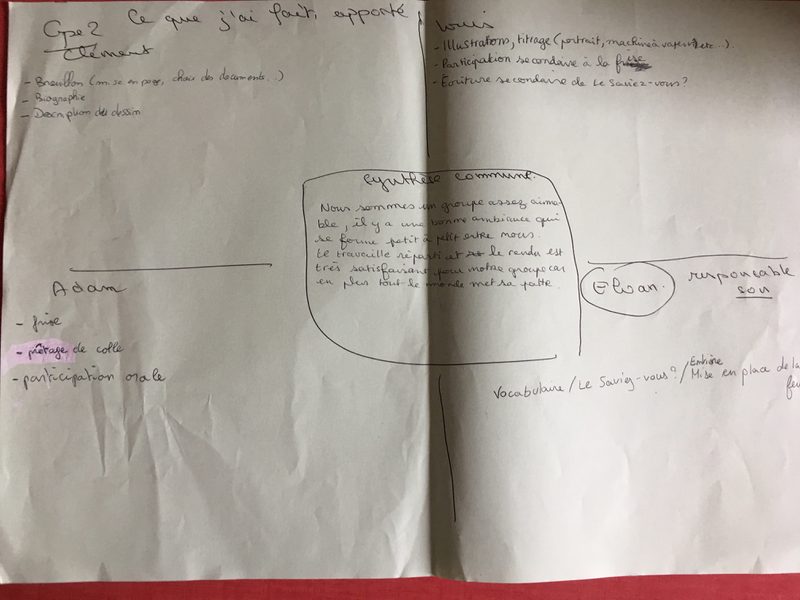 Gpe 2 Ce que j'ai fait, apporté
Clément
- Brouillon (mise en page, choix des documents...)
- Biographie
- Description des dessin
Louis
- Illustrations, titrage (portrait, machine à vapeur, etc...)
- Participation secondaire à la frise
- Écriture secondaire de Le Saviez-vous?
Synthèse commune.
Nous sommes un groupe assez aima-
ble, il y a une bonne ambiance qui
se forme petit à petit entre nous.
Le travaille réparti et le rendu est
très satisfaisant pour notre groupe car
en plus tout le monde met sa patte.
Adam
- frise
- prêtage de colle
- participation orale
Elwan. responsable
son
Vocabulaire / Le Saviez-vous? / Mise en place de la